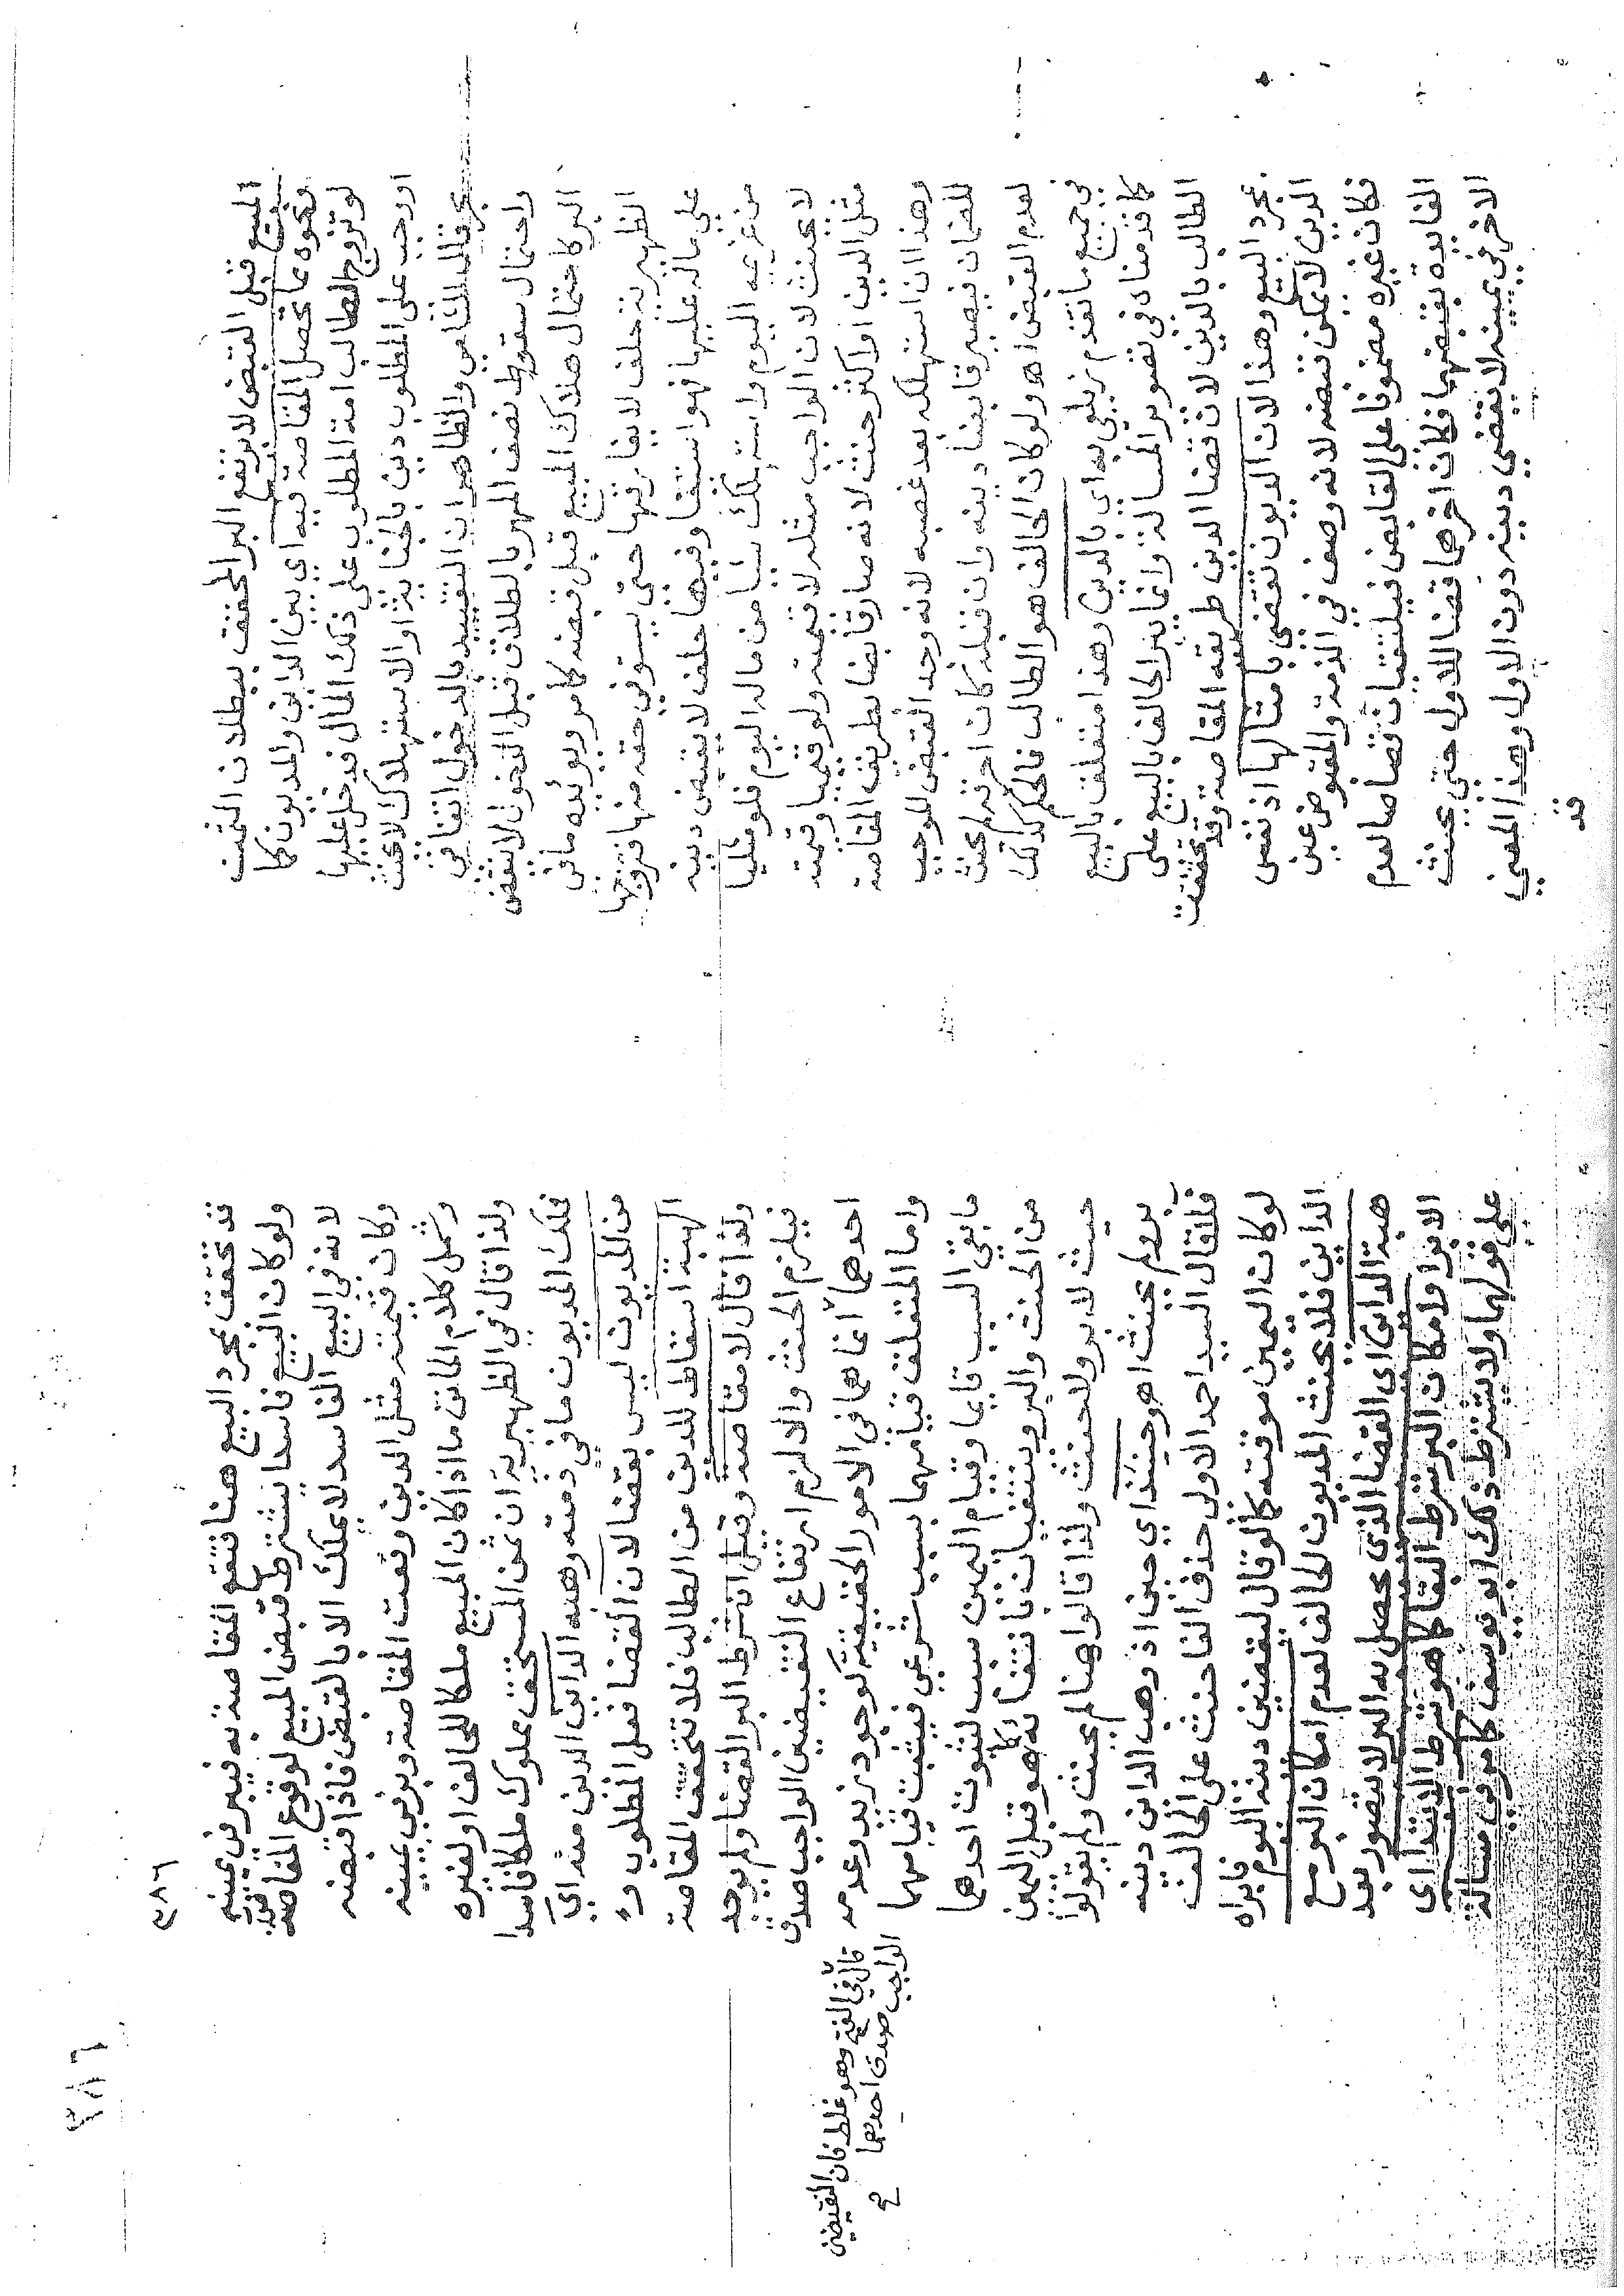 المبيع قبل القبض لا يرتفع البر المحقق ببطلان الثمن
ونحوه مما تحصل المقاصة فيه اي بين الداين والمديون كما
لو تزوج الطالب امة المطلوب على ذلك المال فدخل عليها
او وجب على المطلوب دين بالجناية او الاستهلاك لا يحنث
بحر قال الشامي والظاهر ان التقييد بالدخول اتفاقي
واحتمال سقوط نصف المهر بالطلاق قبل الدخول لا ينقض
البر كاحتمال هلاك المبيع قبل قبضه كما مر ويؤيده ما في
الظهيرية حلف لا يفارقها حتى يستوفي حقه منها فتزوجها
على ماله عليها فهو استيفا وفيها حلف لا يقبض دينه
من غريمه اليوم واستهلك شيا من ماله اليوم فلو مثليا
لا يحنث لان الواجب مثله لا قيمته ولو قيميا وقيمته
مثل الدين او اكثر حنث لانه صار قابضا بطريق المقاصة
وهذا ان استهلكه بعد غصبه لانه وجد القبض الموجب
للضمان فيصير قابضا دينه وان قبله كان احرقه لم يحنث
لعدم القبض اهـ ولو كان الحالف هو الطالب فالحكم كذلك
في جميع ما تقدم زيلعي به اي بالدين وهذا متعلق بالبيع
كما قدمناه في تصوير المسالة وانما بر الحالف بالبيع على
الطالب بالدين لان قضا الدين طريقه المقاصة وقد تحققت
بمجرد البيع وهذا لان الديون تقضى بامثالها اذ نفس
الدين لا يمكن قبضه لانه وصف في الذمة والمقبوض عين
فكان غيره مضمونا على القابض فيلتقيان قصاصا لعدم
الفايدة بقبضهما فكان اخرهما قضا للاول حتى يحنث
الاخر في يمينه لا يقضي دينه دون الاول وهذا المعنى
قد
٣٨٦
٣٨٦
قد تحقق بمجرد البيع هنا فتقع المقاصة به فيبر في يمينه
ولو كان البيع فاسدا يشترط قبض المبيع لوقوع المقاصة
لانه في البيع الفاسد لا يملك الا بالقبض فاذا قبضه
وكان قيمته مثل الدين وقعت المقاصة وبر في يمينه
وشمل كلام الماتن ما اذا كان المبيع ملكا للحالف او لغيره
ولذا قال في الظهيرية ان ثمن المستحق مملوك ملكا فاسدا
فملك المديون ما في ذمته وهبه الداين الدين منه اي
من المديون ليس بقضا لان القضا فعل المطلوب و
الهبة اسقاط للدين من الطالب فلا تتحقق المقاصة
ولذا قال لا مقاصة وقيل ان شرط البر القضا ولم يوجد
فيلزم الحنث والا لزم ارتفاع النقيضين الواجب صدق
احدهما انما هما في الامور الحقيقية كوجود زيد وعدمه
واما المتعلق قيامهما بسبب شرعي فيثبت قيامهما
ما بقي السبب قايما وقيام اليمين سبب لثبوت احدهما
من الحنث والبر وينتفيان بانتفائه كما هو قبل اليمين
حيث لا بر ولا حنث ولذا قالوا هنا لم يحنث ولم يقولوا
بر ولم يحنث اهـ وحينئذ اي حين اذ وهب الداين دينه
فلا قال السيد احمد الاولى حذف الفا حنث على الحالف
لو كان اليمين موقتة كما لو قال ليقضين دينه اليوم فابراه
الداين فلا يحنث المديون الحالف لعدم امكان البر مع
هبة الداين اي القضا الذي يحصل به البر لا يتصور بعد
الابرا وامكان البر شرط البقا كما هو شرط الابتدا اي
على قولهما ولا يشترط ذلك ابو يوسف كما مر في مسالة
قال في الفتح وهو غلط فان النقيضين
الواجب صدق احدهما